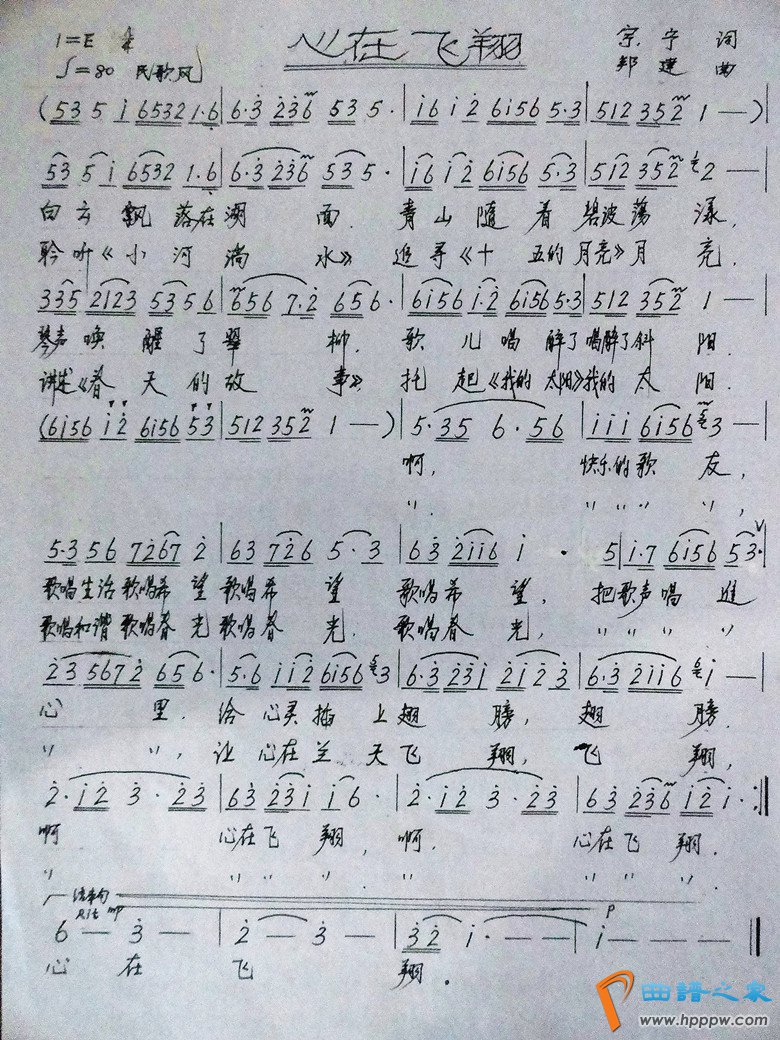 心在飞翔
1=E 4/4
♩=80 民歌风
宗宁 词
邦建 曲
(535 i 6532 1·6 | 6·3 236 535· | i6 i2 6i56 5·3 | 512 352 1—) |
535 i 6532 1·6 | 6·3 236 535· | i6 i2 6i56 5·3 | 512 352 2— |
白云飘落在湖面. 青山随着碧波荡漾,
聆听《小河淌水》 追寻《十五的月亮》月亮.
335 2123 535 6 | 656 7·2 656· | 6i56 i·2 6i56 5·3 | 512 352 1— |
琴声唤醒了翠柳. 歌儿唱醉了唱醉了斜阳.
讲述《春天的故事》 托起《我的太阳》我的太阳.
(6i56 i2 6i56 53 | 512 352 1—) | 5·35 6·56 | iii 6i56 3— |
啊, 快乐的歌友,
〃. 〃 〃 〃 〃 〃,
5·3 56 7267 2 | 63 726 5·3 | 63 2ii6 i· 5 | i·7 6i56 53· |
歌唱生活歌唱希望歌唱希望 歌唱希望, 把歌声唱进
歌唱和谐歌唱春光歌唱春光. 歌唱春光, 〃 〃 〃 〃 〃
23 5672 656· | 5·6 ii2 6i56 3 | 6·3 23i 2i23 | 6·3 2ii6 i— |
心里. 给心灵插上翅膀, 翅膀.
〃 〃, 让心在兰天飞翔, 飞翔,
2·i2 3·23 | 63 23i i6· | 2·i2 3·23 | 63 236 i2i· :||
啊 心在飞翔, 啊. 心在飞翔.
〃 〃 〃 〃 〃. 〃. 〃 〃 〃 〃.
结束句
Rit mp
p
6— 3— | 2— 3— | 32 i·— — | i— — — ||
心在飞翔.
曲谱之家
www.hpppw.com